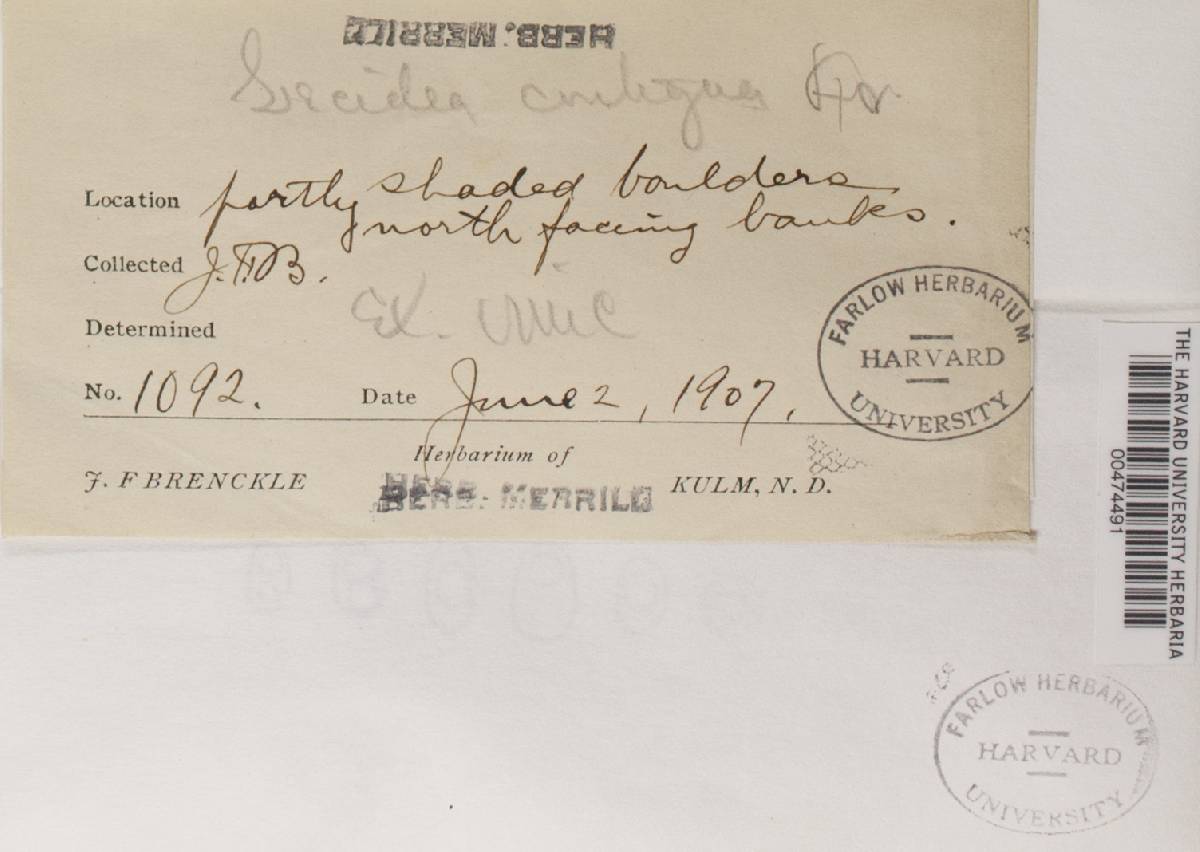 HERB. MERRILL
Lecidea contigua Fr
Location partly shaded boulders
north facing banks.
Collected J.F.B.
Determined Ex.
No. 1092. Date June 2, 1907.
Herbarium of
J. F BRENCKLE KULM, N. D.
HERB. MERRILL
FARLOW HERBARIUM
HARVARD
UNIVERSITY
THE HARVARD UNIVERSITY HERBARIA
00474491
FARLOW HERBARIUM
HARVARD
UNIVERSITY